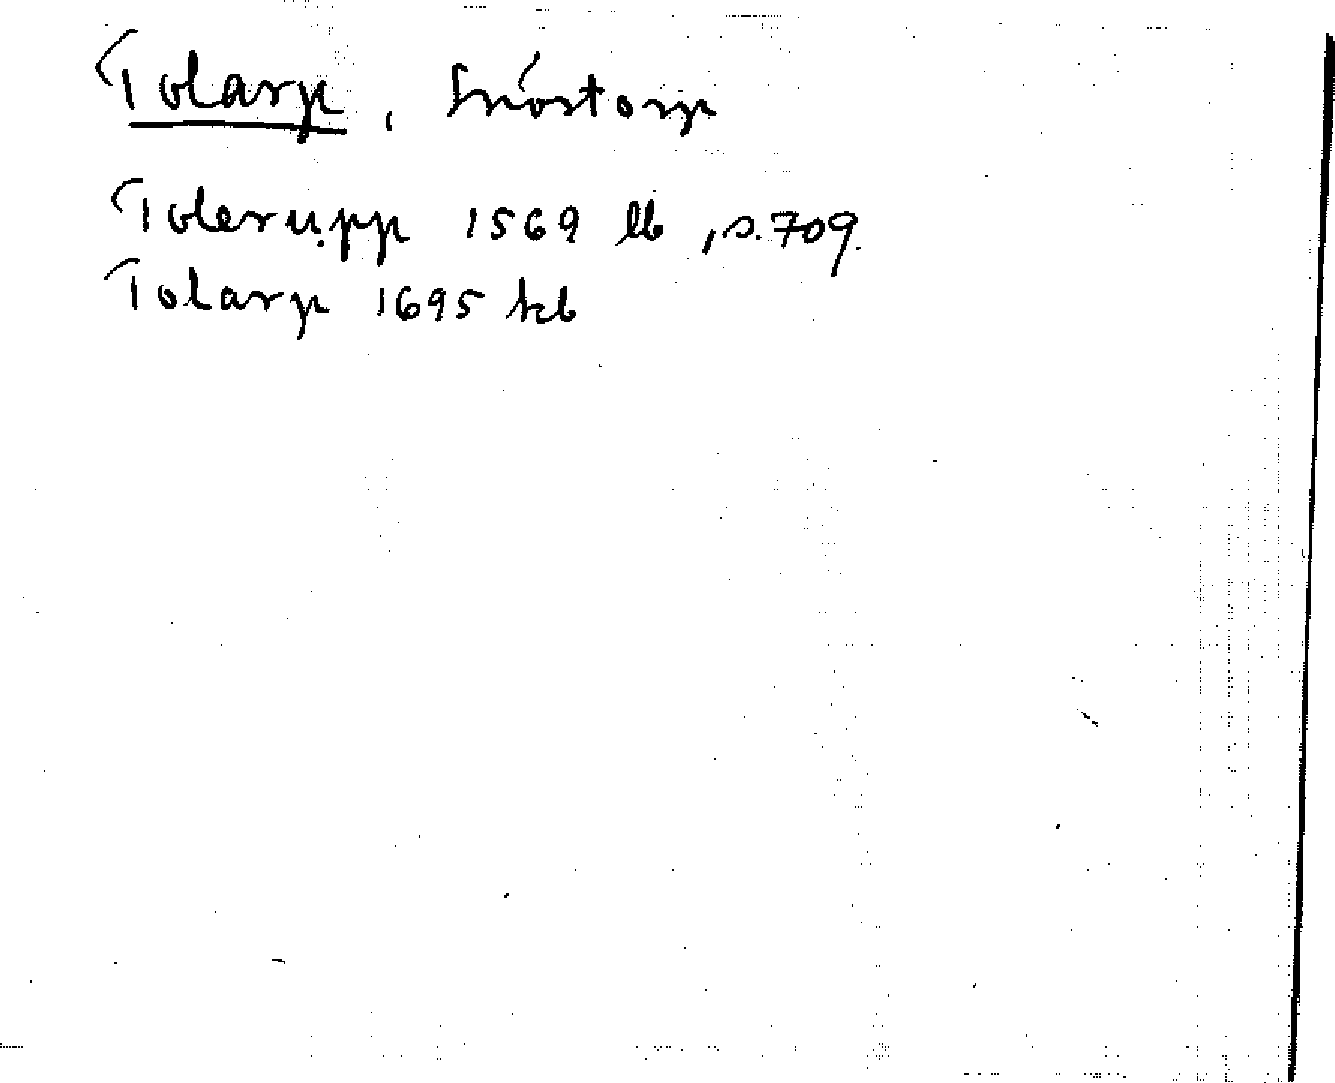 Tolarp, Snöstorp
Tolerupp 1569 lb, s. 709.
Tolarp 1695 kb